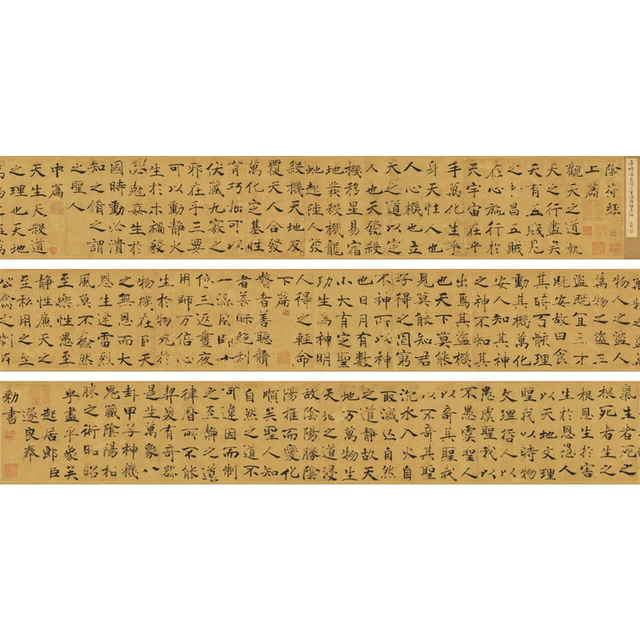 陰符經
上篇
觀天之道執
天之行盡矣
天有五賊見
之者昌五賊
在心施行於
天宇宙在乎
手萬化生乎
身天性人也
人心機也立
天之道以定
人也天發殺
機移星易宿
地發殺機龍
蛇起陸人發
殺機天地反
覆天人合發
萬化定基性
有巧拙可以
伏藏九竅之
邪在乎三要
可以動靜火
生於木禍發
必剋姦生於
國時動必潰
知之脩之謂
之聖人
中篇
天生天殺道
之理也天地
萬物人之盜人
萬物之盜三
盜既宜三才
既安故曰食
其時百骸理
動其機萬化
安人知其神
之神不知其
出焉其盜機
也天下莫能
見莫能知君
子得之固窮
不神而以神
也日月有數
小大有定聖
功生焉神明
人得之輕命
下篇
瞽者善聽聾
者善眎絕利
一源用師十
倍三返晝夜
用師万倍心
生於物死於
物機在目天
之無恩而大
恩生迅雷烈
風莫不蠢然
至樂性愚至
靜性廉天之
至私用之至
公禽之制在
氣生者死之
根死者生之
根恩生於害
生於恩愚人
以天地文理
聖我以時物
文理哲人以
愚虞聖我以
不愚虞聖人
以奇其聖我
以不奇其聖
沉水入火自
取滅亡自然
之道靜故天
地万物生
天地之道浸
故陰陽勝陰
陽推而變化
順矣聖人知
自然之道不
可違因而制
之至靜之道
律曆所不能
契爰有奇器
是生萬象八
卦甲子神機
鬼藏陰陽相
勝之術昭昭
乎盡乎象矣
起居郎臣
遂良奉
勑書